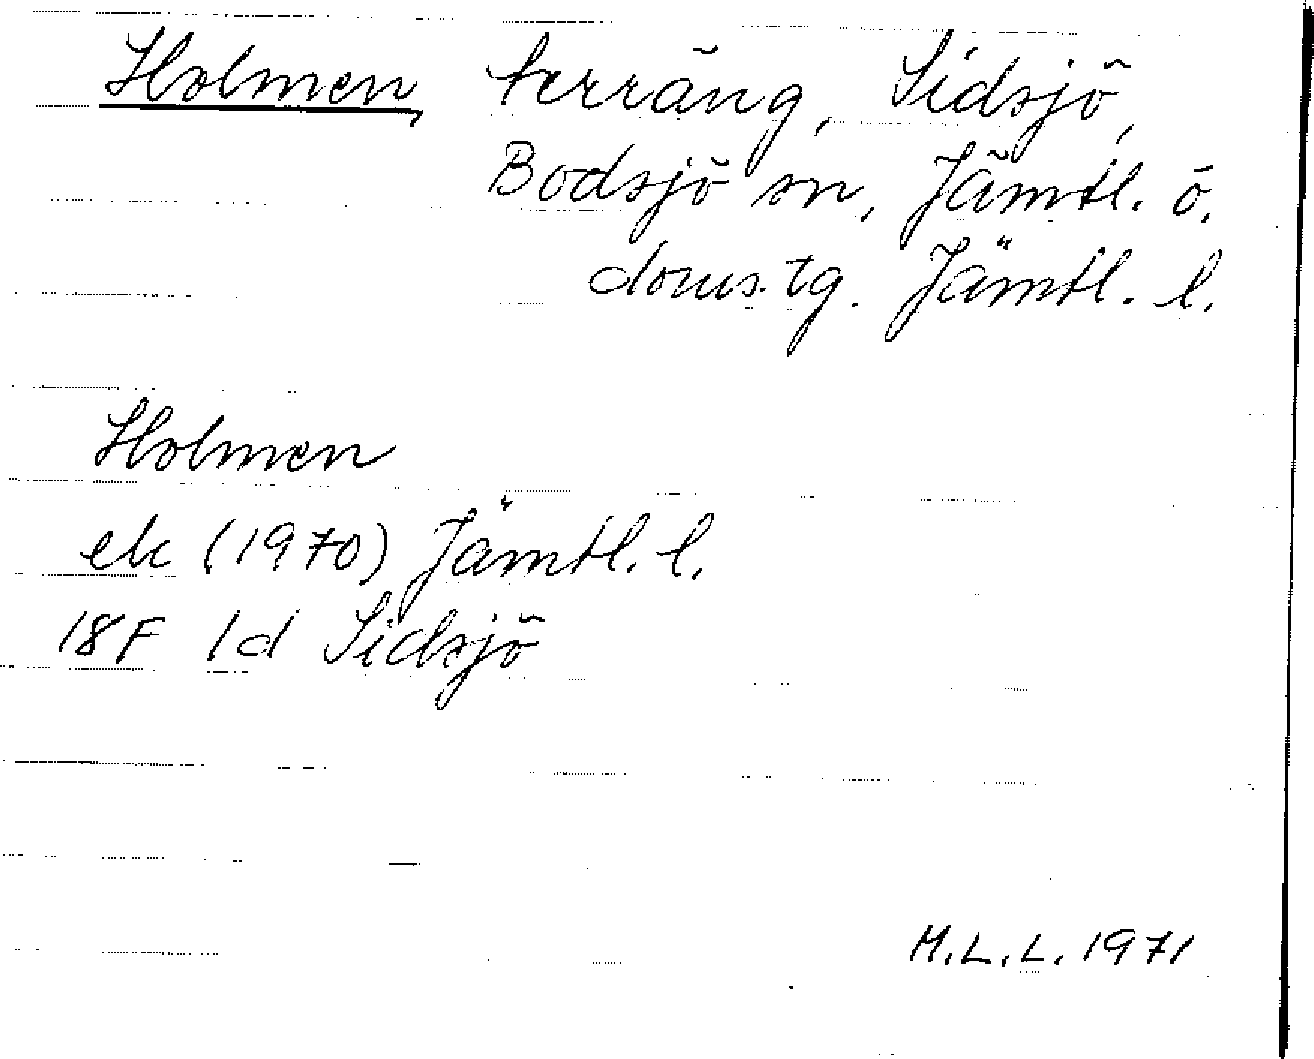 Holmen, terräng, Sidsjö,
Bodsjö sn, Jämtl. ö.
doms.tg. Jämtl. l.
Holmen
ek (1970) Jämtl. l.
18F 1d Sidsjö
M.L.L. 1971